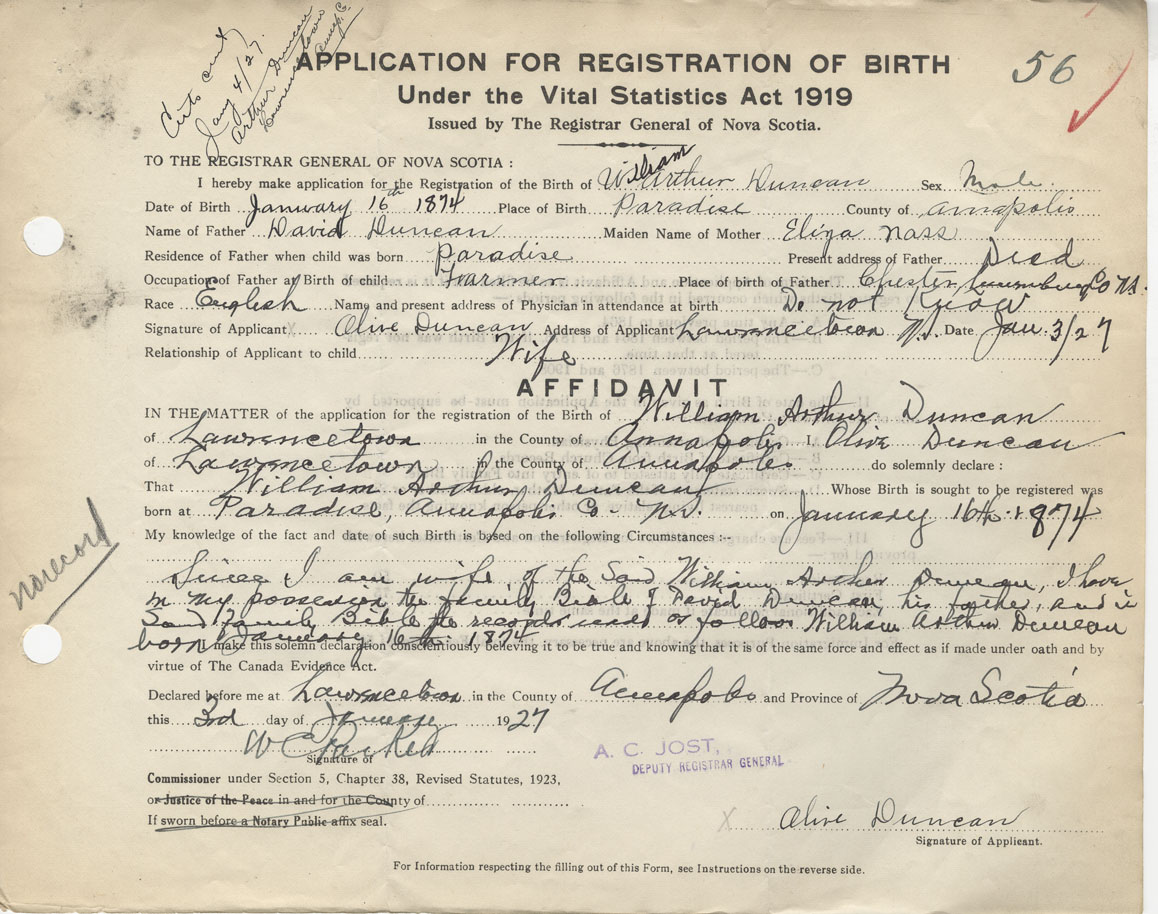 Certs sent
Jany 4/27.
Arthur Duncan
Lawrencetown
Annap. C.
56
APPLICATION FOR REGISTRATION OF BIRTH
Under the Vital Statistics Act 1919
Issued by The Registrar General of Nova Scotia.
TO THE REGISTRAR GENERAL OF NOVA SCOTIA :
I hereby make application for the Registration of the Birth of William Arthur Duncan Sex Male
Date of Birth January 16th 1874 Place of Birth Paradise County of Annapolis
Name of Father David Duncan Maiden Name of Mother Eliza Nass
Residence of Father when child was born Paradise Present address of Father Died
Occupation of Father at Birth of child Farmer Place of birth of Father Chester, Lunenburg Co NS.
Race English Name and present address of Physician in attendance at Birth Do not know
Signature of Applicant X Olive Duncan Address of Applicant Lawrencetown N.S. Date Jan. 3/27
Relationship of Applicant to child Wife
AFFIDAVIT
IN THE MATTER of the application for the registration of the Birth of William Arthur Duncan
of Lawrencetown in the County of Annapolis I, Olive Duncan
of Lawrencetown in the County of Annapolis do solemnly declare :
That William Arthur Duncan Whose Birth is sought to be registered was
born at Paradise, Annapolis Co. N.S. on January 16th. 1874
My knowledge of the fact and date of such Birth is based on the following Circumstances :--
Since I am wife of the Said William Arthur Duncan, I have
in my possession the family Bible of David Duncan, his father, and in
Said family Bible the records read as follows William Arthur Duncan
born January 16th 1874
I make this solemn declaration conscientiously believing it to be true and knowing that it is of the same force and effect as if made under oath and by
virtue of The Canada Evidence Act.
norecord
Declared before me at Lawrencetown in the County of Annapolis and Province of Nova Scotia
this 3rd day of January 1927
W C Parker
Signature of
A. C. JOST,
DEPUTY REGISTRAR GENERAL
Commissioner under Section 5, Chapter 38, Revised Statutes, 1923,
or Justice of the Peace in and for the County of
If sworn before a Notary Public affix seal.
X Olive Duncan
Signature of Applicant.
For Information respecting the filling out of this Form, see Instructions on the reverse side.